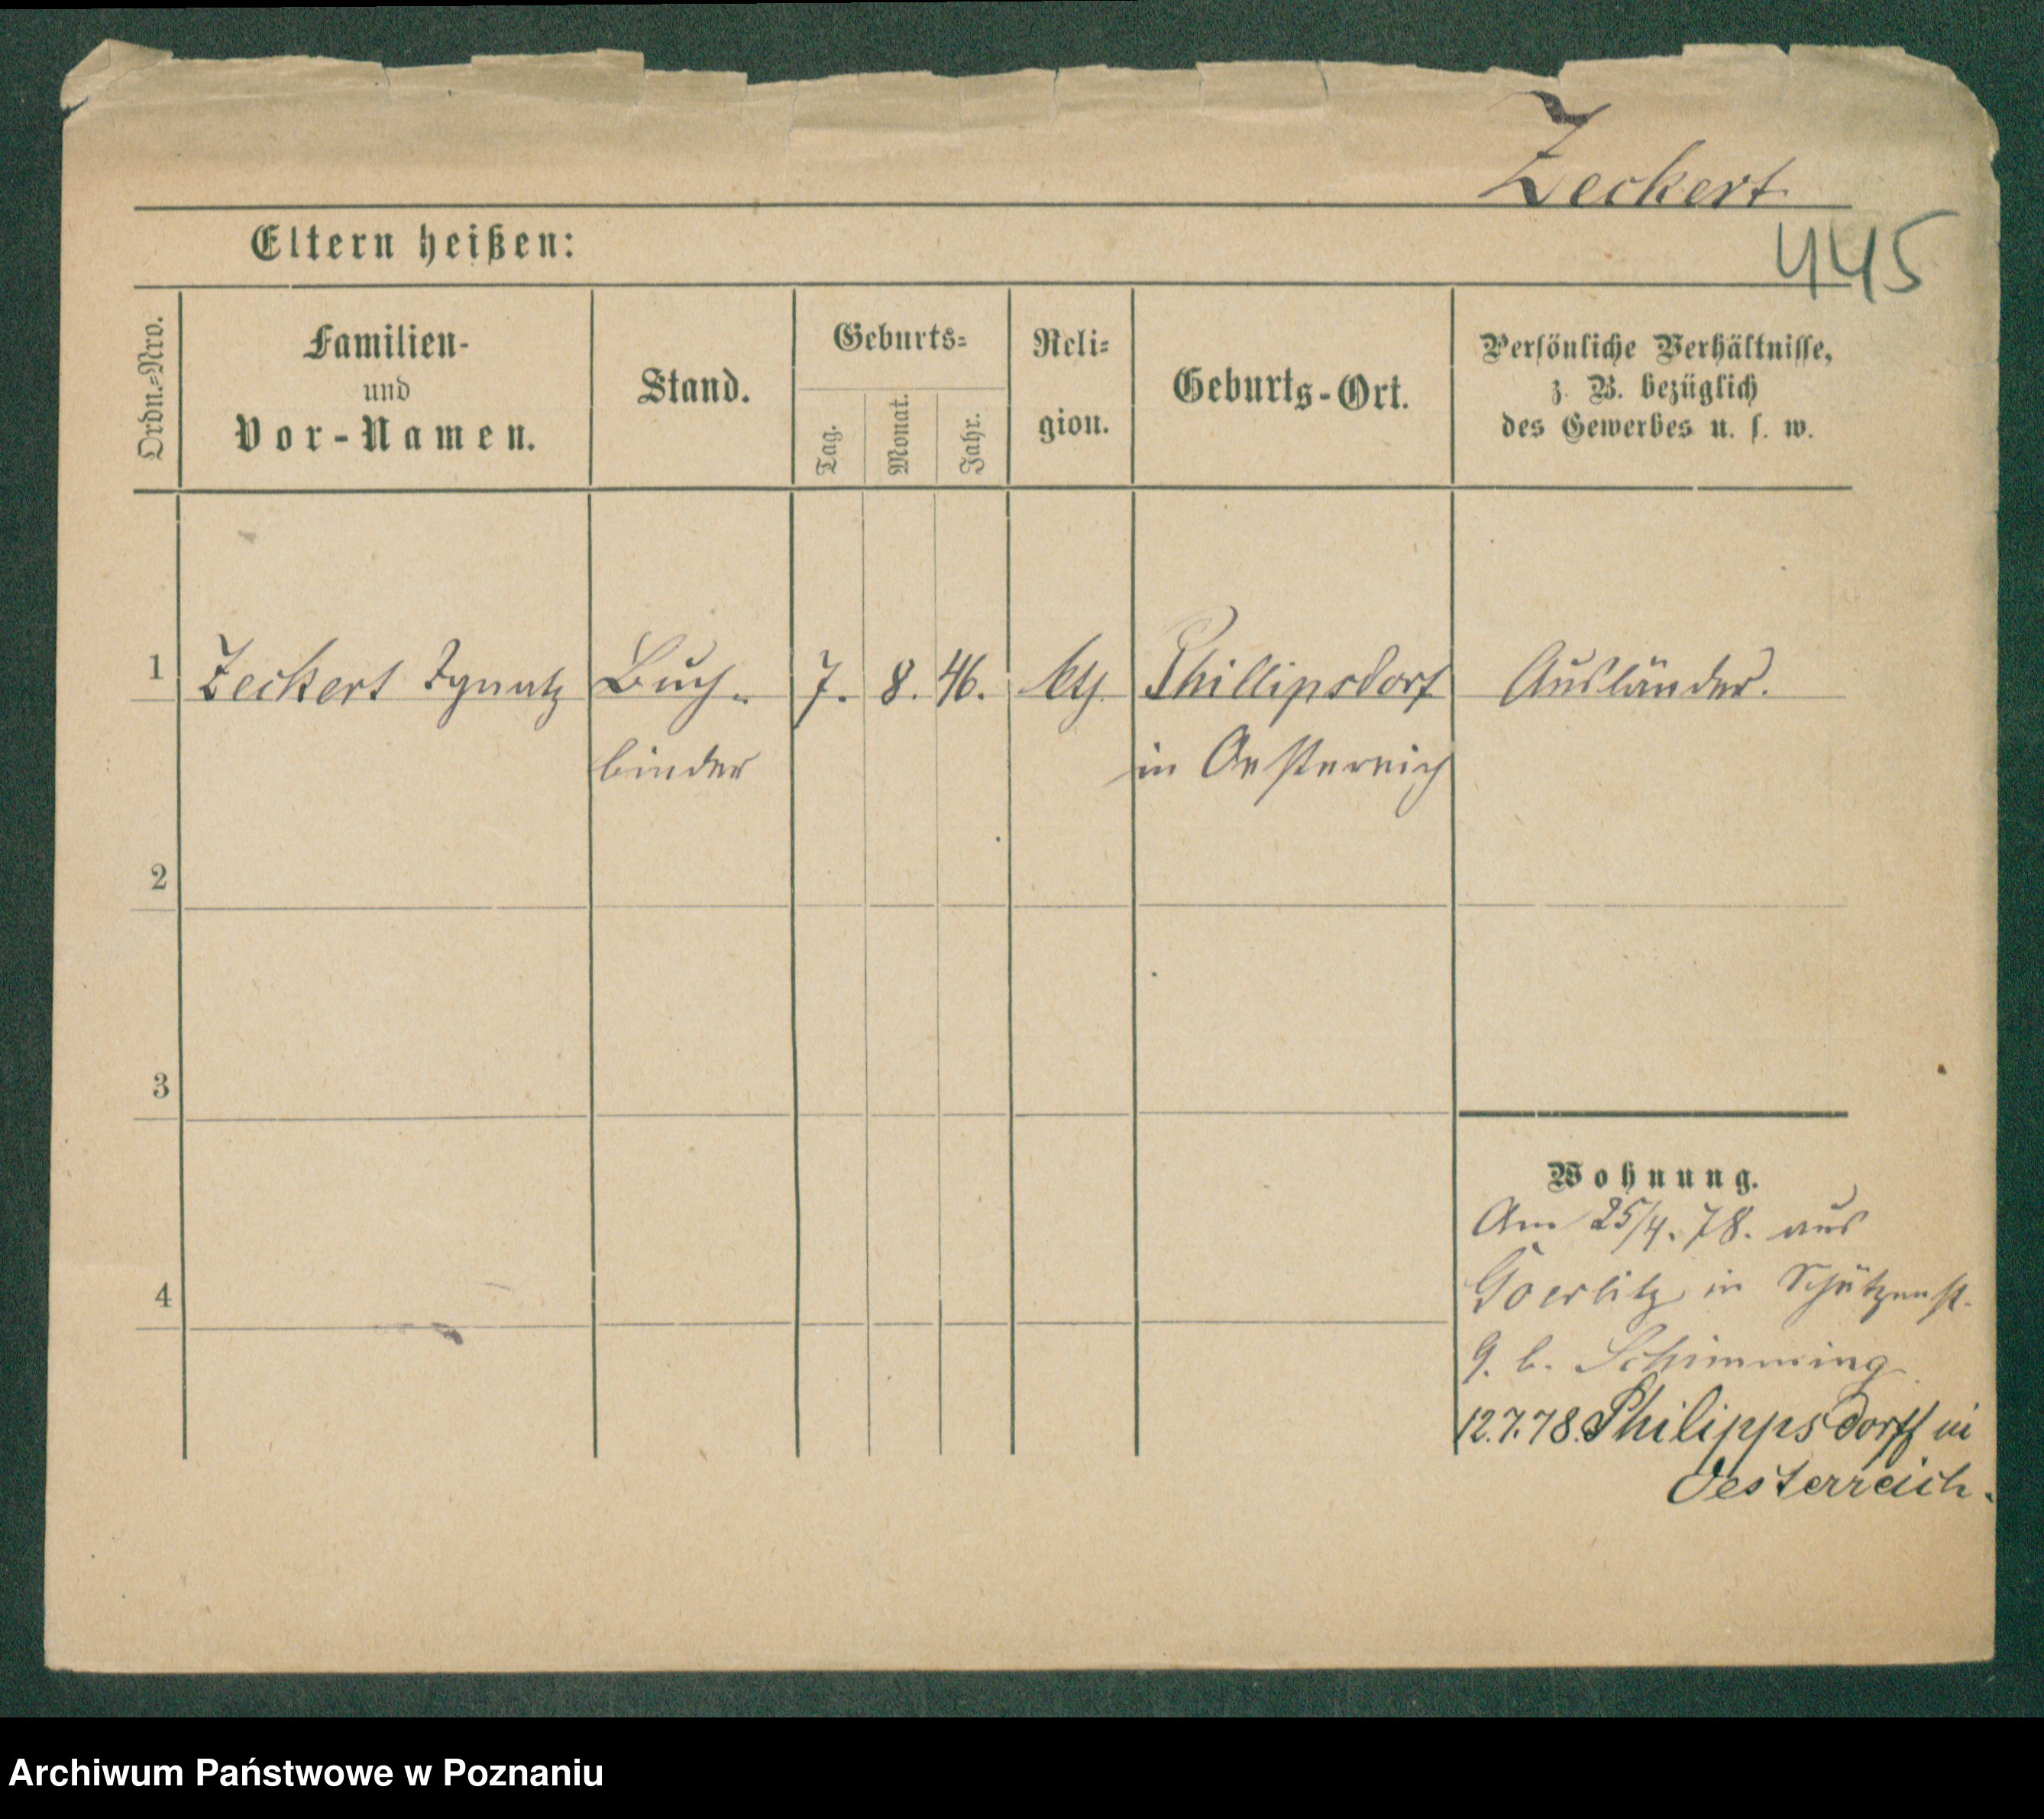 Zeckert
445
Eltern heißen:
Ordn.-Nro.
Familien-
und
Vor-Namen.
Stand.
Geburts-
Tag.
Monat.
Jahr.
Reli-
gion.
Geburts-Ort.
Persönliche Verhältnisse,
z. B. bezüglich
des Gewerbes u. s. w.
1 Zeckert Ignatz Buch- 7. 8. 46. kth. Phillipsdorf Ausländer.
binder in Oestereich
2
3
4
Wohnung.
Am 25/4. 78. aus
Goerlitz in Schützenst.
9. b. Schimming
12.7.78. Philippsdorff in
Oesterreich.
Archiwum Państwowe w Poznaniu